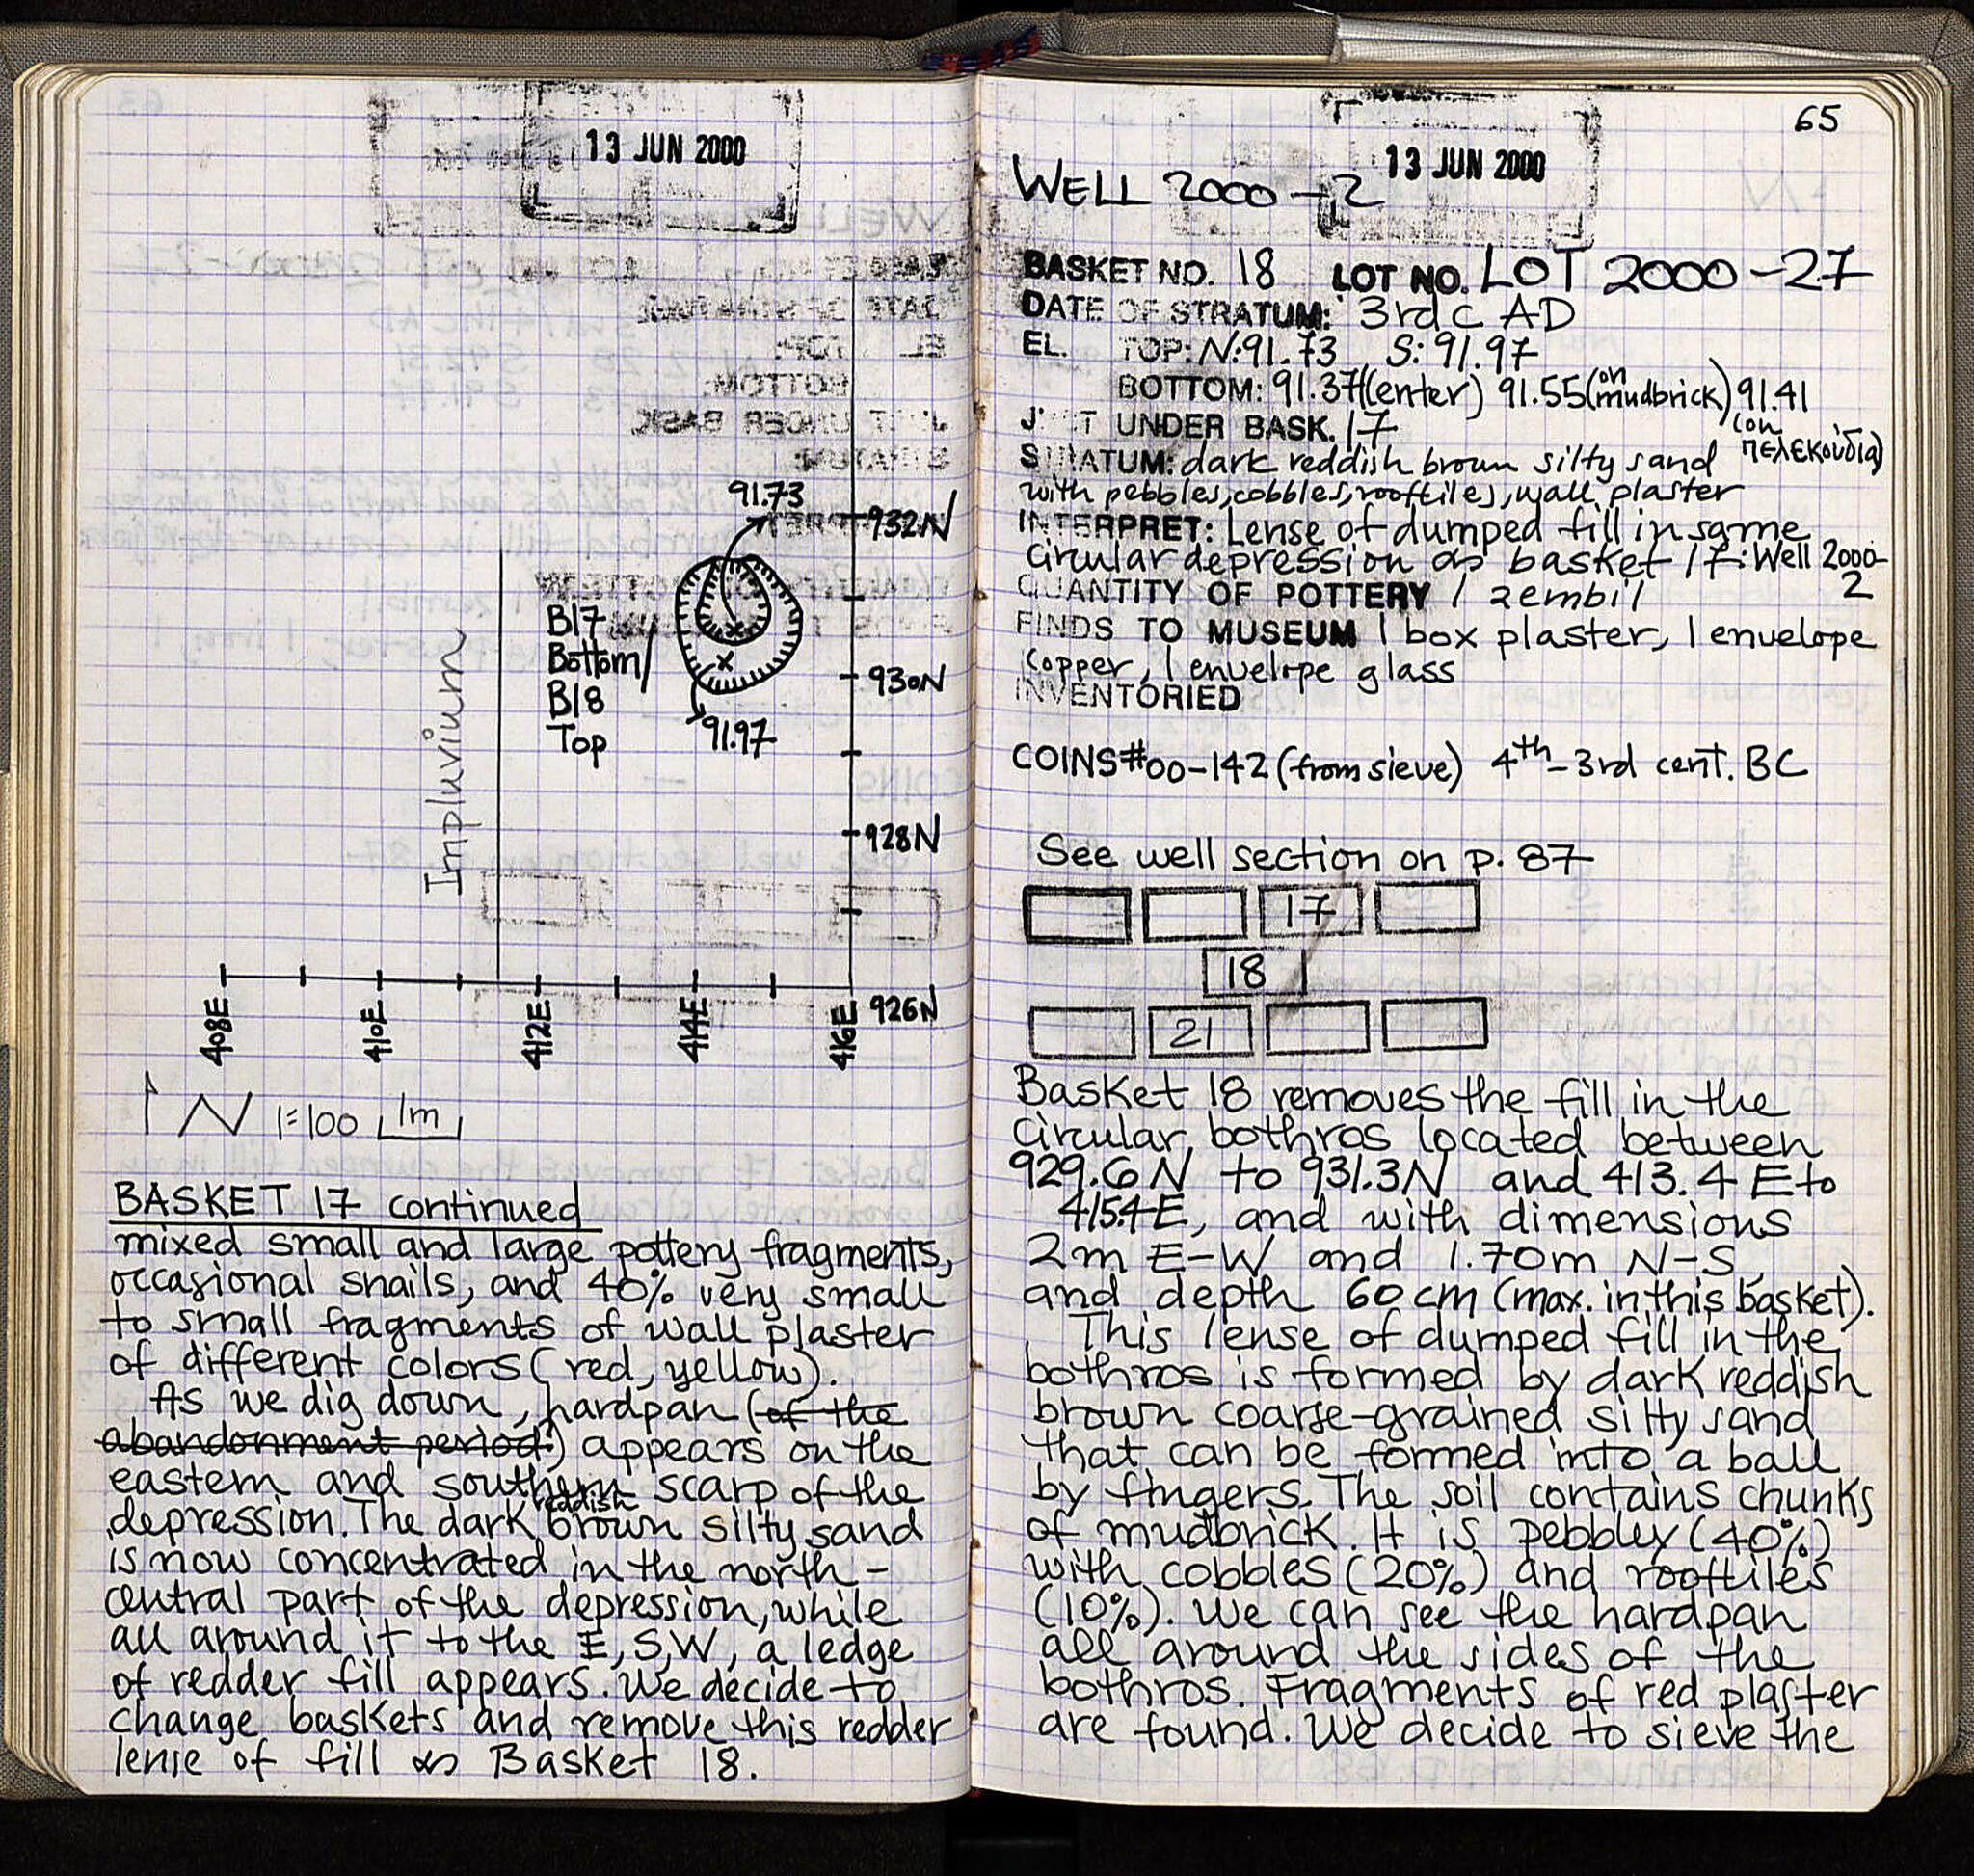 13 JUN 2000
91.73
932N
B17
Bottom/
B18
Top
930N
91.97
Impluvium
928N
926N
408E
410E
412E
414E
416E
N 1:100 1m
BASKET 17 continued
mixed small and large pottery fragments,
occasional snails, and 40% very small
to small fragments of wall plaster
of different colors (red, yellow).
As we dig down, hardpan (of the
abandonment period?) appears on the
eastern and southern scarp of the
reddish
depression. The dark brown silty sand
is now concentrated in the north-
central part of the depression, while
all around it to the E, S, W, a ledge
of redder fill appears. We decide to
change baskets and remove this redder
lense of fill as Basket 18.
65
13 JUN 2000
WELL 2000-2
BASKET NO. 18 LOT NO. LOT 2000-27
DATE OF STRATUM: 3rd c AD
EL. TOP: N:91.73 S: 91.97
BOTTOM: 91.37(center) 91.55(on mudbrick) 91.41
(on πελεκούδια)
JUST UNDER BASK. 17
STRATUM: dark reddish brown silty sand
with pebbles, cobbles, rooftiles, wall plaster
INTERPRET: Lense of dumped fill in same
circular depression as basket 17: Well 2000-
2
QUANTITY OF POTTERY 1 zembil
FINDS TO MUSEUM 1 box plaster, 1 envelope
copper, 1 envelope glass
INVENTORIED
COINS #00-142 (from sieve) 4th-3rd cent. BC
See well section on p. 87
17
18
21
Basket 18 removes the fill in the
circular bothros located between
929.6N to 931.3N and 413.4 E to
415.4E, and with dimensions
2m E-W and 1.70m N-S,
and depth 60cm (max. in this basket).
This lense of dumped fill in the
bothros is formed by dark reddish
brown coarse-grained silty sand
that can be formed into a ball
by fingers. The soil contains chunks
of mudbrick. It is pebbley (40%)
with cobbles (20%) and rooftiles
(10%). We can see the hardpan
all around the sides of the
bothros. Fragments of red plaster
are found. We decide to sieve the